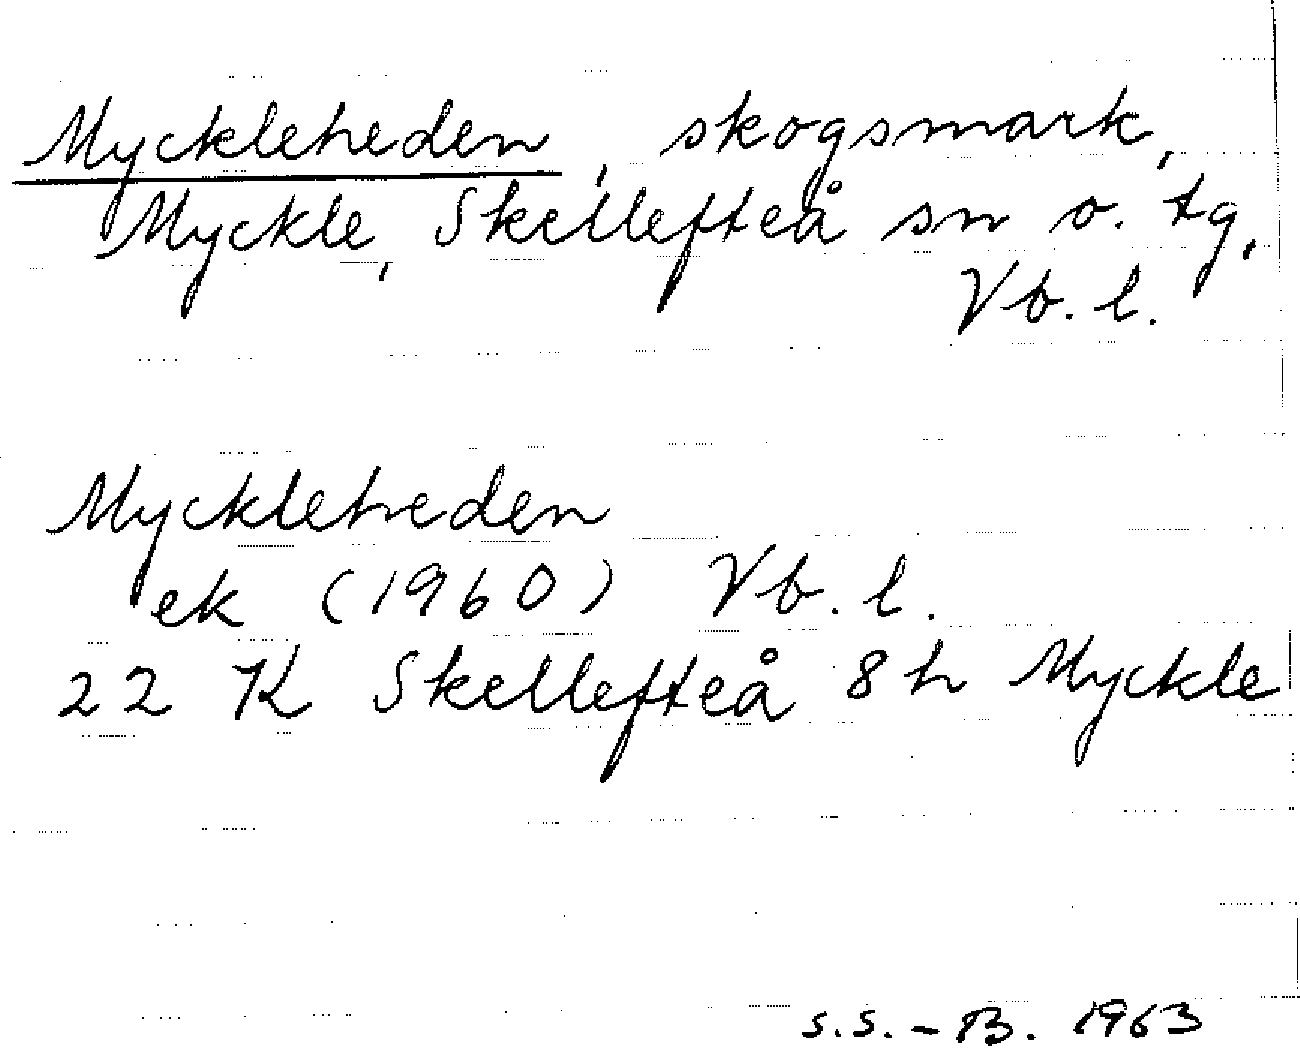 Myckleheden, skogsmark,
Myckle, Skellefteå sn o. tg,
Vb. l.
Myckleheden
ek (1960) Vb. l.
22 K Skellefteå 8h Myckle
S.S.-B. 1963